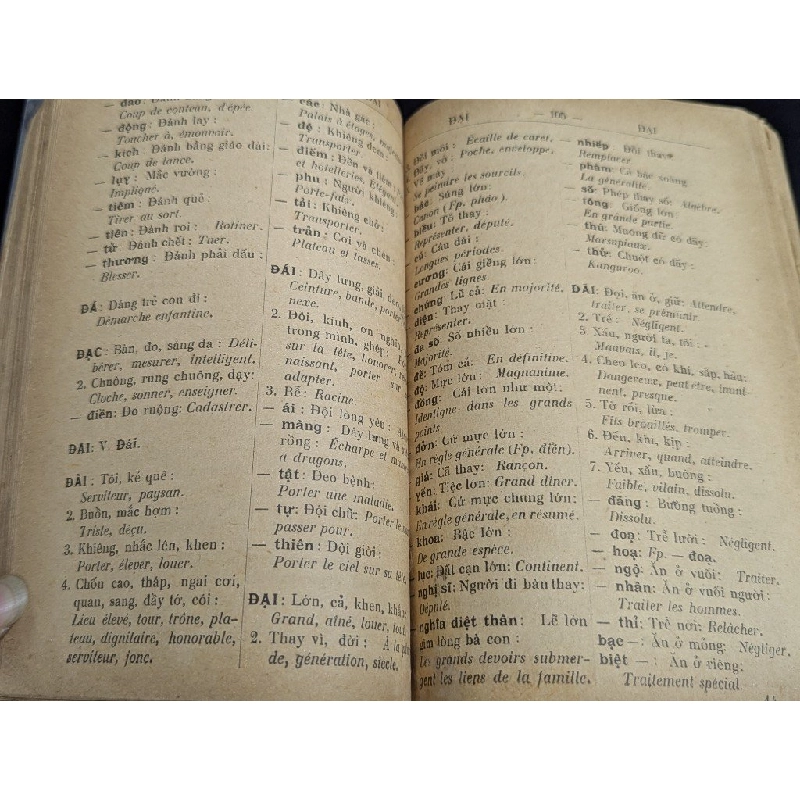 — đao: Đánh
Coup de couteau, d'épée.
— động: Đánh lay:
Toucher à, émouvoir.
— kích Đánh bằng giáo dài:
Coup de lance.
— lụy: Mắc vướng:
Impliqué.
— tiêm: Đánh quẻ:
Tirer au sort.
— tiên: Đánh roi: Rotiner.
— tử Đánh chết: Tuer.
— thương: Đánh phải dấu:
Blesser.
ĐẢ: Dáng trẻ con đi:
Démarche enfantine.
ĐẠC: Bàn, đo, sang đa: Déli-
bérer, mesurer, intelligent.
2. Chuông, rung chuông, dạy:
Cloche, sonner, enseigner.
— điền: Đo ruộng: Cadastrer.
ĐAI: V. Đái.
ĐÀI: Tôi, kẻ quê:
Serviteur, paysan.
2. Buồn, mắc hơm:
Triste, déçu.
3. Khiêng, nhắc lên, khen:
Porter, élever, louer.
4. Chốn cao, tháp, ngai cơi,
quan, sang, đầy tớ, cói:
Lieu élevé, tour, trône, pla-
teau, dignitaire, honorable,
serviteur, jonc.
— các: Nhà gác:
Palais à étages,
— đệ: Khiêng đem:
Transporter
— điếm: Đồn và
et hôtelleries,
— phu: Người khiêng:
Porte-faix.
— tải: Khiêng chở:
Transporter.
— trản: Cơi và chén:
Plateau et tasses.
ĐÁI: Dây lưng, giải,
Ceinture, bande, porter
nexe.
2. Đội, kính, ơn
trong mình, ghép:
sur la tête, honorer,
naissant, porter sur
adapter.
3. Rễ: Racine
— ái: Đội lòng yêu:
— mãng: Dây lưng và
rồng: Écharpe et
a dragons.
— tật: Đeo bệnh:
Porter une maladie.
— tự: Đội chữ: Porter le
passer pour.
— thiên: Đội giời:
Porter le ciel sur sa tête
ĐẠI: Lớn, cả, khen,
Grand, aîné, louer,
2. Thay vì, đời: A la
de, génération, siècle.
ĐẠI — 105 — ĐẠI
Đồi mồi: Écaille de caret.
Đẫy, vỏ: Poche, enveloppe.
Vẽ mày
Se peindre les sourcils
bác: Súng lớn:
Canon (Fp. pháo).
biểu: Tỏ thay:
Représenter, député.
cú: Câu dài:
Longues périodes.
cương: Cái giềng lớn:
Grandes lignes
chúng Lũ cả: En majorité.
diện: Thay mặt:
Représenter.
đa số Số nhiều lớn:
Majorité.
để: Tóm cả: En définitive.
độ: Mực lớn: Magnanime.
đồng: Cái lớn như một:
Identique dans les grands
points
đởn: Cứ mực lớn:
En règle générale (Fp, điển).
giá: Cả thay: Rançon.
yến: Tiệc lớn: Grand dîner.
khái: Cứ mực chung lớn:
En règle générale, en résumé.
khoa: Bậc lớn:
De grande espèce.
lục: Đất cạn lớn: Continent.
nghị sĩ: Người đi bàu thay:
Député.
nghĩa diệt thân: Lẽ lớn
làm lòng bà con:
Les grands devoirs submer-
gent les liens de la famille.
nhiếp Đổi thay
Remplacer
phàm: Cả bậc xoàng
La généralité.
— số: Phép thay số: Algèbre.
— tông: Giống lớn:
En grande partie.
— thú: Muông dết có đẫy:
Marsupiaux.
— thử: Chuột có đẫy:
Kanguroo.
ĐÃI: Đợi, ăn ở, giữ: Attendre,
traiter, se prémunir
2. Trễ: Négligent.
3 Xấu, người ta, tôi:
Mauvais, il, je.
4. Cheo leo, có khi, sắp, hầu:
Dangereux, peut être, immi-
nent, presque.
5. Tơ rối, lừa:
Fils brouillés, tromper.
6. Đến, khi, kịp:
Arriver, quand, atteindre.
7. Yếu, xấu, buông:
Faible, vilain, dissolu.
— đãng: Bường tuồng:
Dissolu.
— đọa: Trễ lười: Négligent.
— hoạ: Fp. — đoạ.
— ngộ: Ăn ở vuôi: Traiter.
— nhân: Ăn ở vuôi người:
Traiter les hommes.
— thỉ: Trễ nơi: Relâcher.
bạc —: Ăn ở mỏng: Négliger.
biệt —: Ăn ở riêng:
Traitement spécial